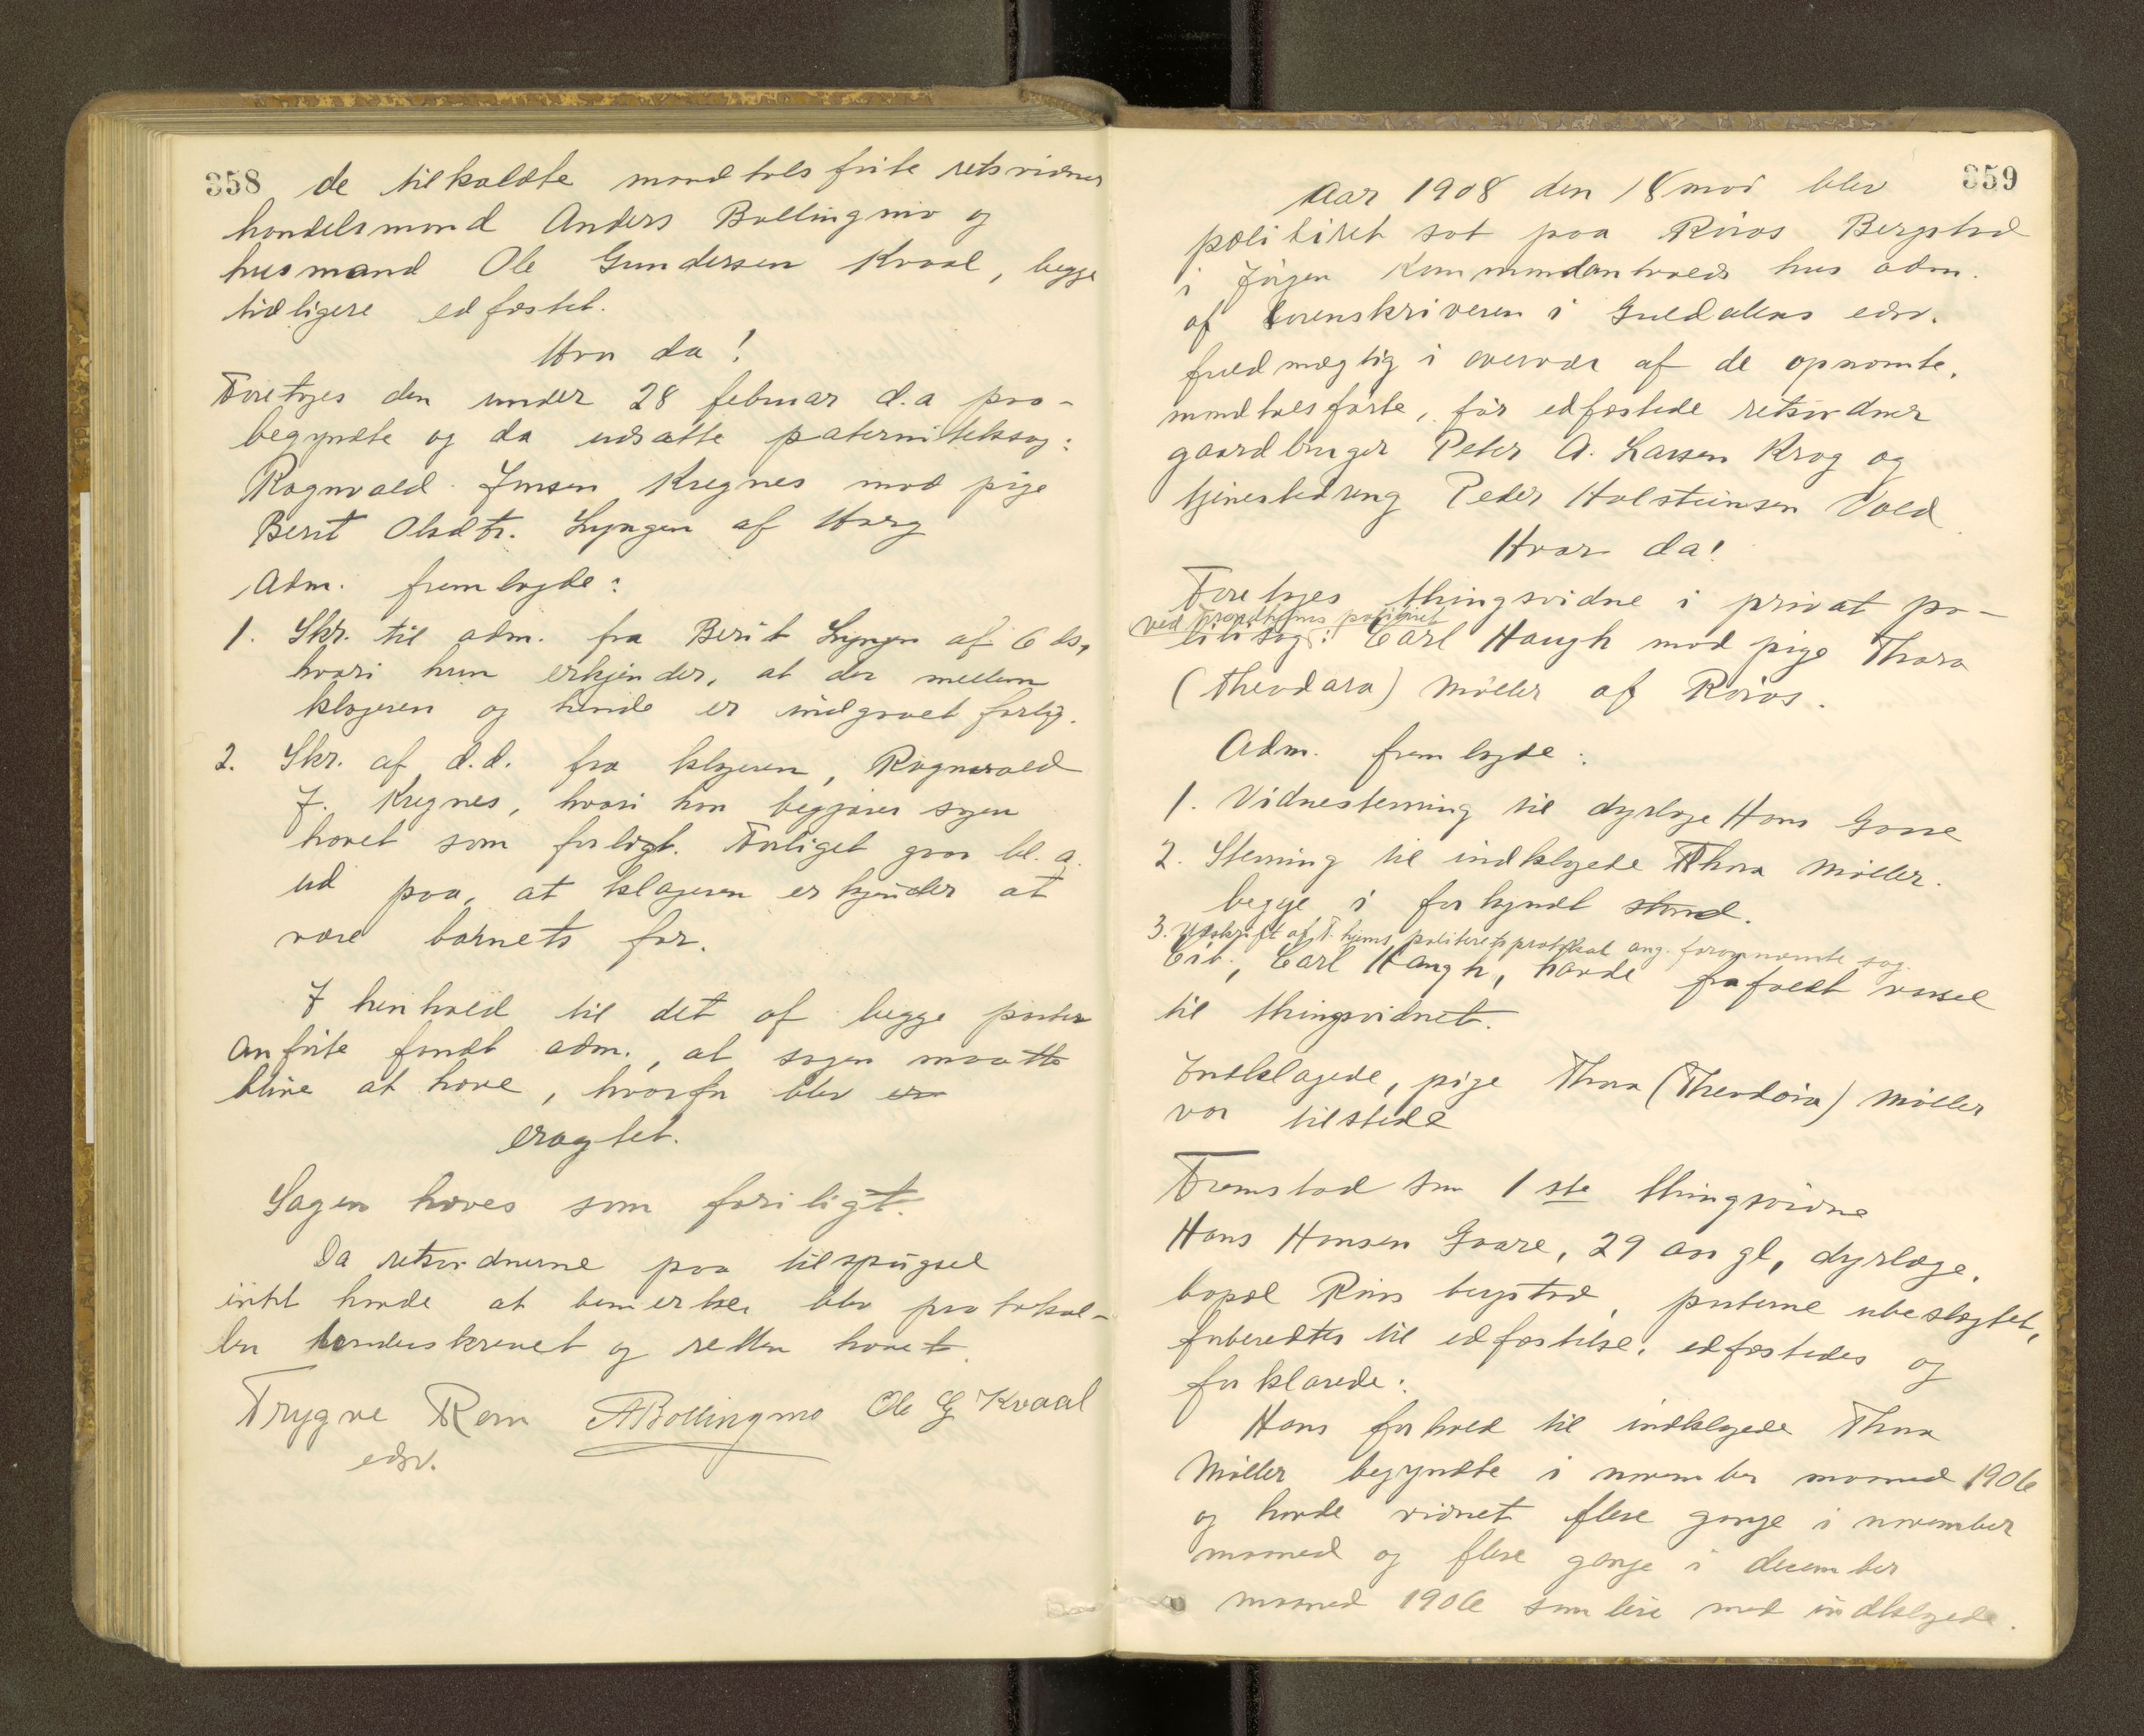 358 de tilkaldte mandtalsførte retsvidner
handelsmand Anders Bollingmo og
husmand Ole Gundersen Kvaal, begge
tidligere edfæstet.
Hvor da!
Foretoges den under 28 februar d.a paa-
begyndte og da udsatte paternitetssag:
Ragnvald Jensen Kregnes mod pige
Berit Olsdtr. Lyngen af Horg
Adm. fremlagde:
1. Skr. til adm. fra Berit Lyngen af 6 ds,
hvori hun erkjender, at der mellem
klageren og hende er indgaaet forlig.
2. Skr. af d.d. fra klageren, Ragnvald
J. Kregnes, hvori han begjærer sagen
hævet som forligt. Forliget gaar bl. a.
ud paa, at klageren erkjender at
være barnets far.
I henhold til det af begge parter
anførte fandt adm., at sagen maatte
blive at hæve, hvorfor blev er
eragtet.
Sagen hæves som forligt.
Da retsvidnerne paa tilspørgsel
intet havde at bemerke blev protokol-
len underskrevet og retten hævet.
Trygve Rom ABollingmo Ole G Kvaal
edsv.
359
Aar 1908 den 18 mai blev
politiret sat paa Røros Bergstad
i Jørgen Kommandantvolds hus adm.
af sorenskriveren i Guldalens edsv.
fuldmægtig i overvær af de opnævnte,
mandtalsførte, før edfæstede retsvidner
gaardbruger Peter A. Larsen Krog og
tjenestedreng Peder Holsteinsen Vold
Hvor da!
Foretoges thingsvidne i privat po-
ved Trondhjems politiret
litisag: Carl Haugh mod pige Thora
(Theodara) Møller af Røros.
Adm. fremlagde:
1. Vidnestevning til dyrlæge Hans Gaare
2. Stevning til indklagede Thora Møller.
begge i forkyndt stand.
3. Udskrift af T.hjems politiretsprotokol ang. foromnævnte sag.
Cit., Carl Haugh, havde frafaldt varsel
til thingsvidnet.
Indklagede, pige Thora (Theodora) Møller
var tilstede
Fremstod som 1ste thingsvidne
Hans Hansen Gaare, 29 aar gl, dyrlæge,
bopæl Røros bergstad, parterne ubeslægtet,
forberedtes til edfæstelse, edfæstedes og
forklarede:
Hans forhold til indklagede Thora
Møller begyndte i november maaned 1906
og havde vidnet flere gange i november
maaned og flere gange i december
maaned 1906 samleie med indklagede.